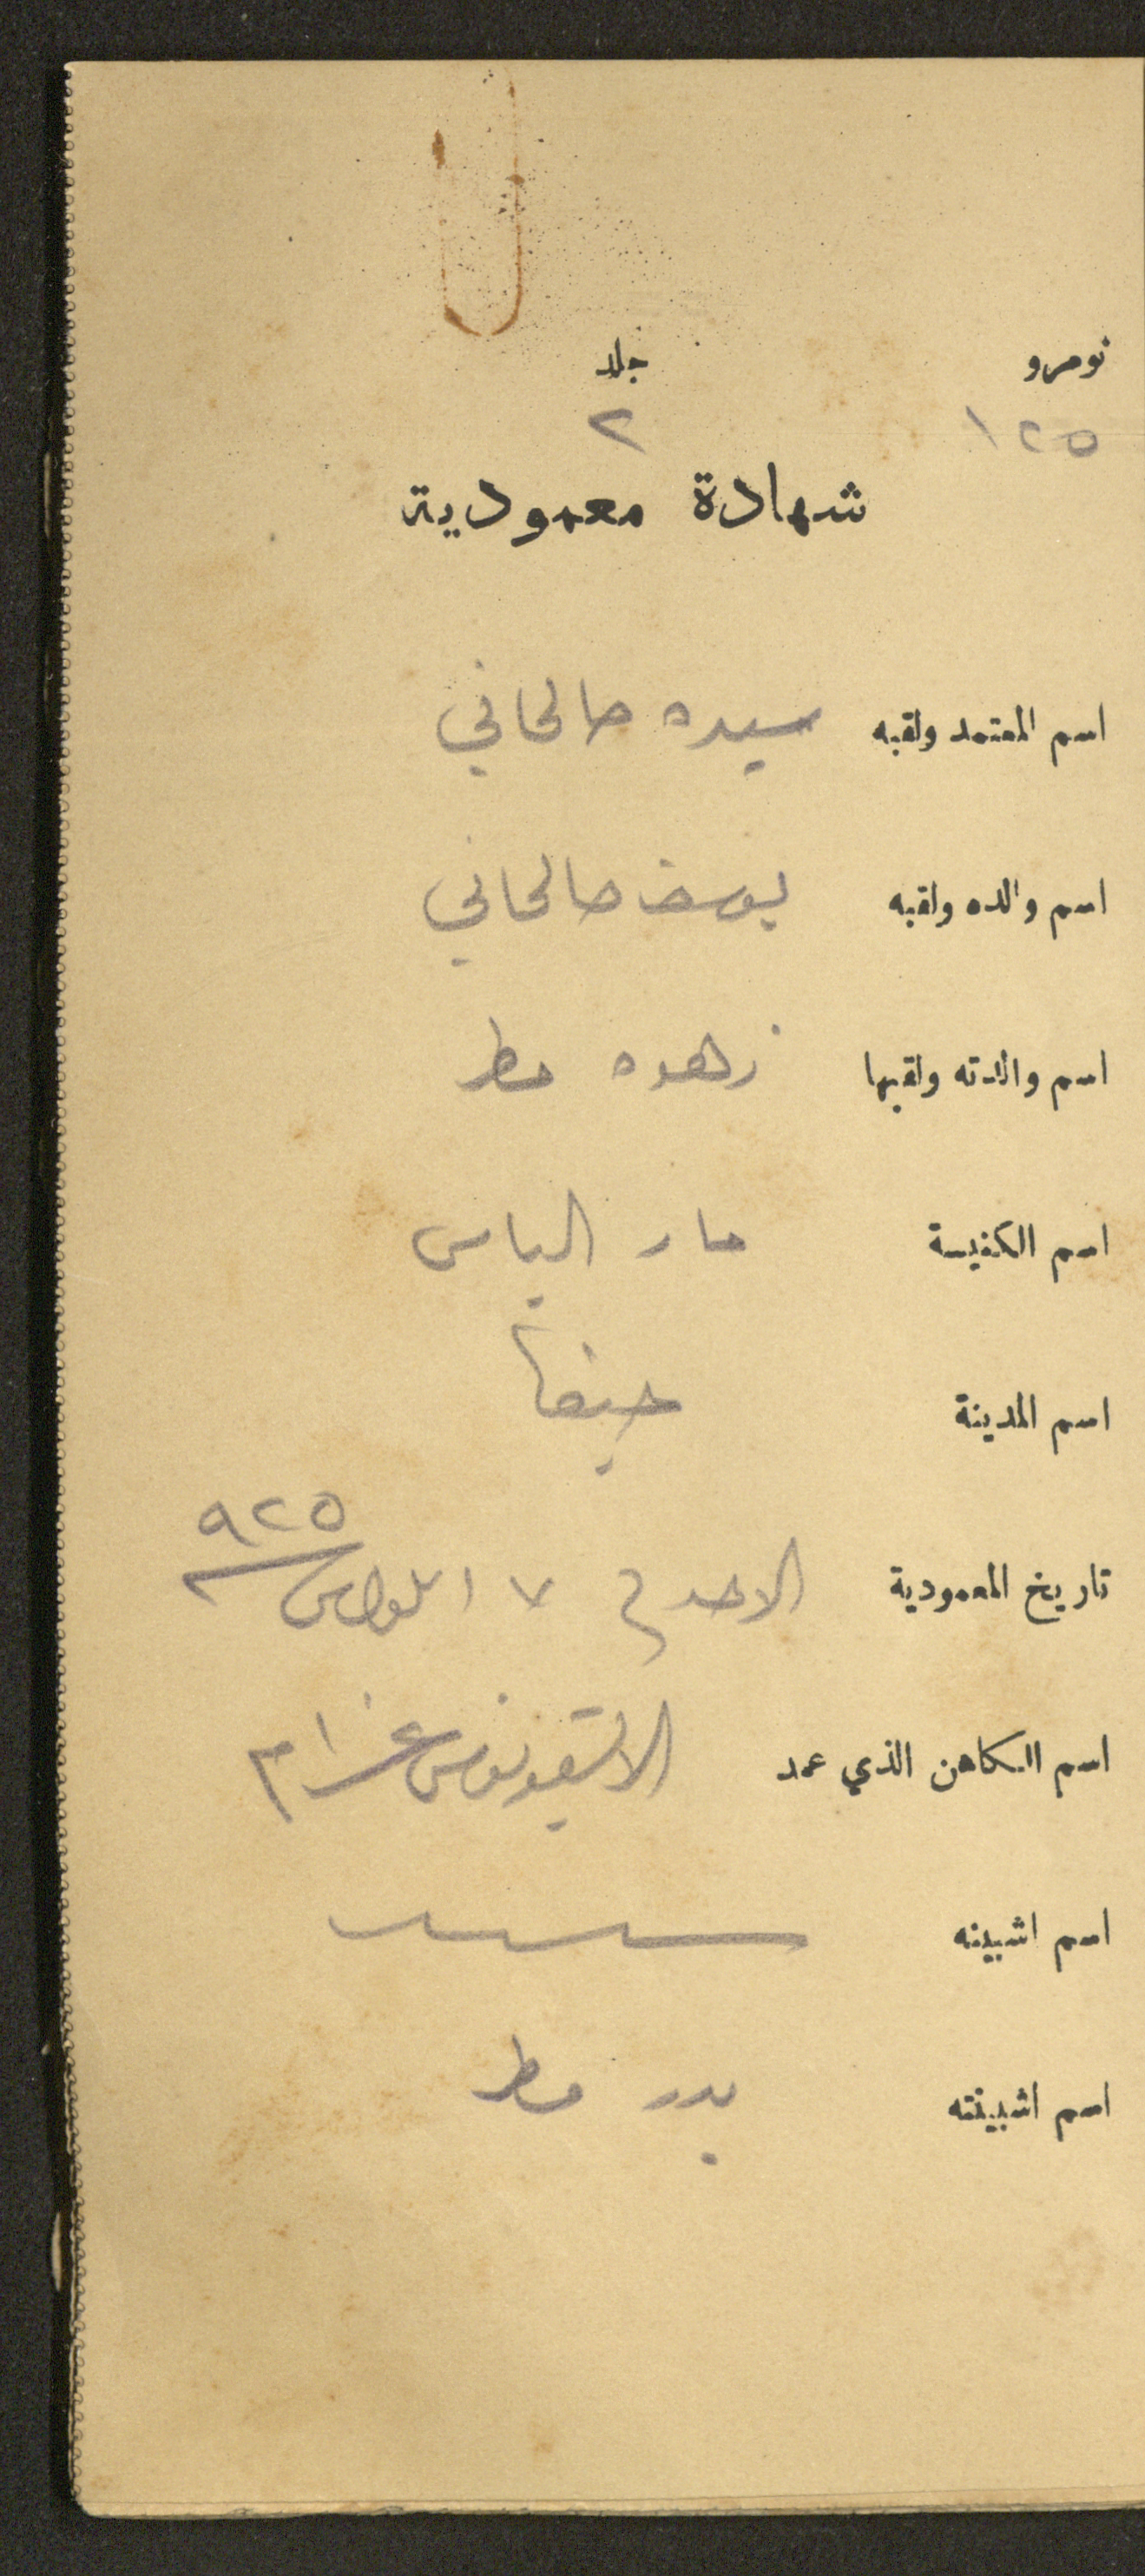 نومرو جلد
١٢٥ ٢
شهادة معمودية
اسم المعتمد ولقبه سيده صالحاني
اسم والده ولقبه يوسف صالحاني
اسم والدته ولقبها زهده مطر
اسم الكنيسة مار الياس
اسم المدينة حيفا
تاريخ المعمودية الاحد في ٧ ٩٢٥
اسم الكاهن الذي عمد
اسم اشبينه
اسم اشبينته بدر مطر